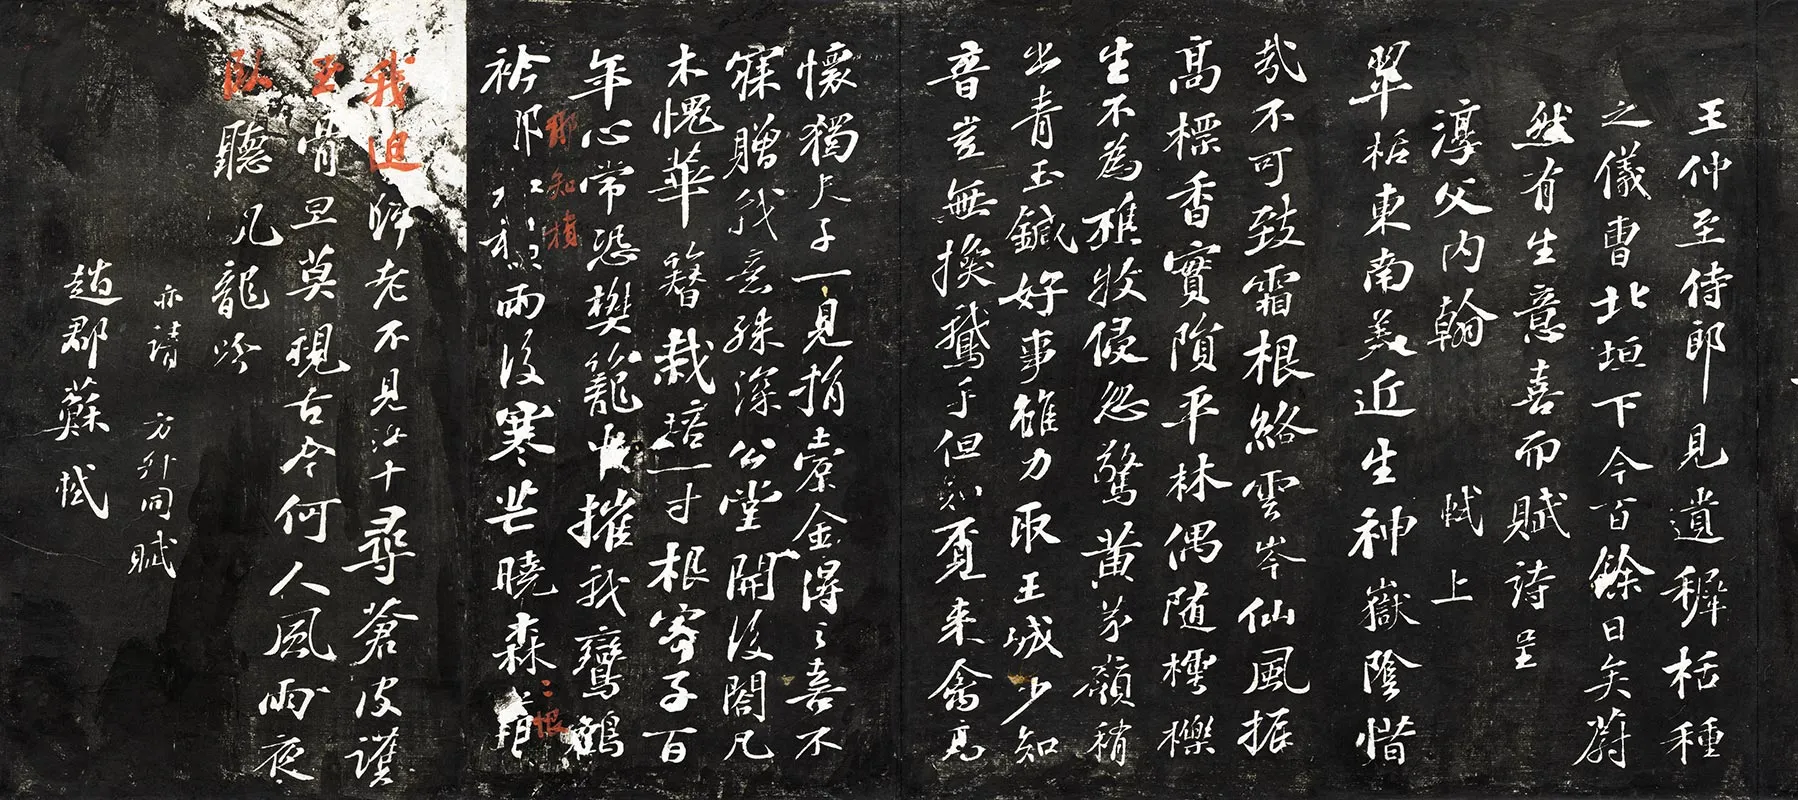 王仲至侍郎見遺穉栝種
之儀曹北垣下今百餘日矣蔚
然有生意喜而賦詩呈
淳父內翰 軾上
翠栝東南美近生神嶽陰惜
哉不可致霜根絡雲岑仙風振
高標香實隕平林偶隨樗櫟
生不為樵牧侵忽驚黃茅嶺稍
出青玉鍼好事雖力取王城少知
音豈無換鵝手但知覓來禽高
懷獨夫子一見捐橐金得之喜不
寐贈我意殊深公堂開後閣凡
木愧華簪栽培一寸根寄子百
年心常恐樊籠中摧我鸞鶴
那知積 恨
衿那 雨後寒芒曉森
我迫歸老不見汝十尋蒼皮護
玉骨旦莫視古今何人風雨夜
臥聽飢龍吟
亦請 方外同賦
趙郡蘇軾